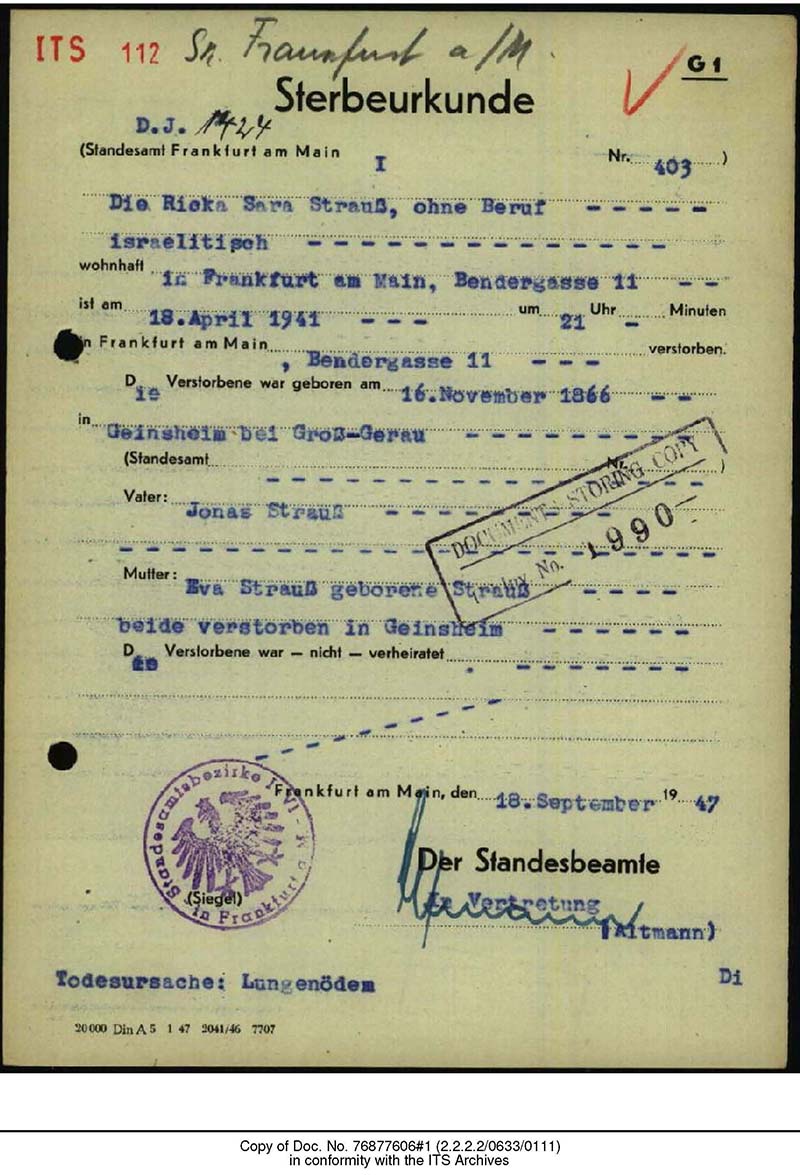 ITS 112 Sr. Frankfurt a/M.
G 1
Sterbeurkunde
D.J. 1424
(Standesamt Frankfurt am Main I Nr. 403 )
Die Ricka Sara Strauß, ohne Beruf - - - - -
israelitisch - - - - - - - - - - - - - -
wohnhaft in Frankfurt am Main, Bendergasse 11 - -
ist am 18.April 1941 - - - um 21 Uhr - Minuten
in Frankfurt am Main , Bendergasse 11 - - - verstorben.
Die Verstorbene war geboren am 16.November 1866 - -
in Geinsheim bei Groß-Gerau - - - - - - - -
(Standesamt - - - - - - - - - - - Nr. )
DOCUMENTS STORING COPY
Vater: Jonas Strauß - - - - - - - -
1990
No.
Mutter: Eva Strauß geborene Strauß - - - -
beide verstorben in Geinsheim - - - - - -
Die Verstorbene war — nicht — verheiratet . - - - - - - -
Frankfurt am Main, den 18.September 19 47
Standesamtsbezirke I-VI - in Frankfurt a. M.
Der Standesbeamte
(Siegel)
In Vertretung
(Altmann)
Todesursache: Lungenödem Di
20000 Din A 5 1 47 2041/46 7707
Copy of Doc. No. 76877606#1 (2.2.2.2/0633/0111)
in conformity with the ITS Archives